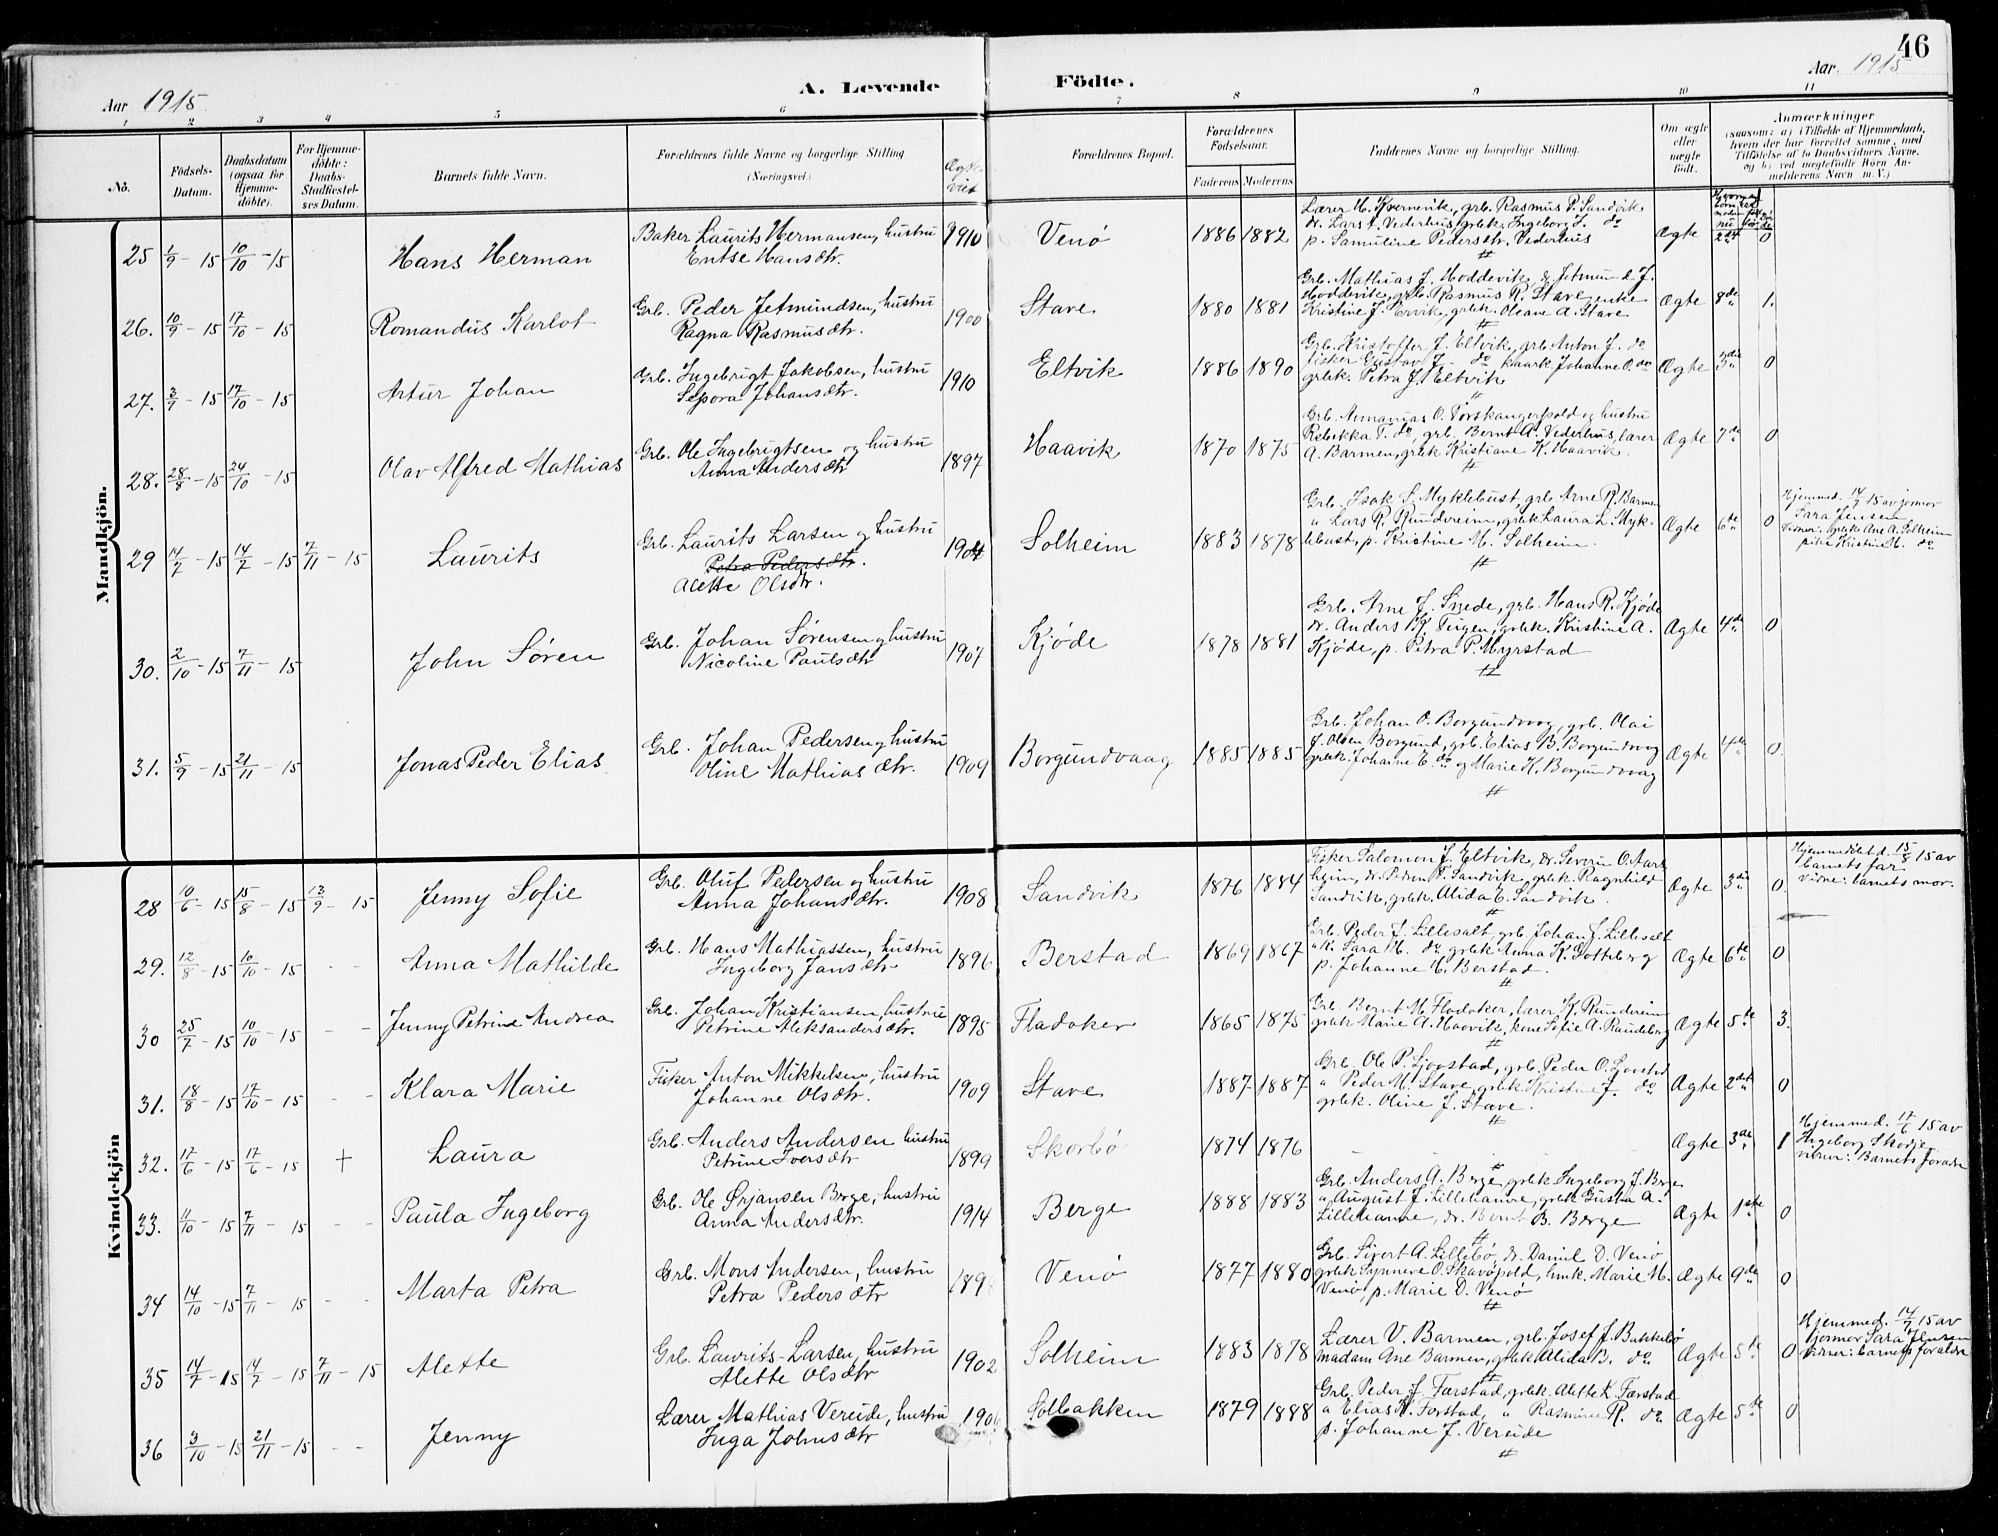 46
Aar 1915
A. Levende Födte.
Aar 1915
1 2 3 4 5 6 7 8 9 10 11
No.
Födsels-
Datum.
Daabsdatum
(ogsaa for
Hjemme-
döbte).
For Hjemme-
döbte:
Daabs-
Stadfæstel-
ses Datum.
Barnets fulde Navn.
Forældrenes fulde Navne og borgerlige Stilling
(Næringsvei)
Forældrenes Bopæl.
Forældrenes
Födselsaar.
Faderens Moderens
Faddernes Navne og borgerlige Stilling.
Om ægte
eller
uægte
födt.
Anmærkninger
(saasom: a) i Tilfælde af Hjemmedaab,
hvem der har forrettet samme, med
Tilföielse af to Daabsvidners Navne,
og b) ved uægtefödte Börn An-
melderens Navn m. V.)
Mandkjön.
25 1/9 - 15 10/10 - 15 Hans Herman Baker Laurits Hermansen, hustru
Entse Hansdtr. 1910 Venö 1886 1882 Lærer M. Kvernevik, grb. Rasmus P. Sandvik
dr. Lars T. Vederhus, grbk. Ingeborg J. do
p. Samuline Pedersdtr. Vederhus Ægte 2det 0
26. 10/9 - 15 17/10 - 15 Romandus Karlot Grb. Peder Jetmundsen, hustru
Ragna Rasmusdtr. 1900 Stave 1880 1881 Grb. Mathias J. Hoddevik, dr. Jetmund J.
Hoddevik, grb. Rasmus R. Stave, enke
Kristine J. Ervik, grbk. Oleane A. Stave Ægte 8de 1.
27. 3/9 - 15 17/10 - 15 Artur Johan Grb. Ingebrigt Jakobsen, hustru
Sepora Johansdtr. 1910 Eltvik 1886 1890 Grb. Kristoffer J. Eltvik, grb. Anton J. do
fisker Gustav J. do kaark Johanne O. do
grbk. Petra J. Eltvik Ægte 3die 0
28. 28/8 - 15 24/10 - 15 Olav Alfred Mathias Grb. Ole Ingebrigtsen og hustru
Anna Andersdtr 1897 Haavik 1870 1875 Grb. Annanias O. Torskangerpold og hustru
Rebekka T. do, grb. Bernt A. Vederhus, lærer
A. Barmen, grbk Kristiane K. Haavik. Ægte 7de 0
29 14/7 - 15 14/7 - 15 7/11 - 15 Laurits Grb. Laurits Larsen og hustru
Petra Pedersdtr.
Alette Olsdtr. 1904 Solheim 1883 1878 Grb. Isak S. Myklebust, grb. Arne R. Barmen
u Lars R. Rundereim, grbk Laura L. Myk-
lebust, p. Kristine M. Solheim. Ægte 6te 0 Hjemmed. 14/7 15 av jormor
Sara Jensen
Vidner: grbk. Ane A. Solheim
pike Kristine M. do
30. 2/10 - 15 7/11 - 15 John Sören Grb. Johan Sørensen og hustru
Nicoline Paulsdtr 1907 Kjøde 1878 1881 Grb. Arne J. Snede, grb. Hans R. Kjøde
dr. Anders K. Turgen, grbk. Kristine A.
Kjøde, p. Petra P. Myrstad Ægte 4de 0
31. 5/9 - 15 21/11 - 15 Jonas Peder Elias Grb. Johan Pedersen og hustru
Oline Mathiasdtr. 1909 Borgundvaag 1885 1885 Grb. Johan O. Borgundvaag, grb. Olai
J. Olsen Borgund, grb. Elias B. Borgundvaag
grbk. Johanne E. do og Marie K. Borgundvaag Ægte 4de 0.
Kvindekjön
28 10/6 - 15 15/8 - 15 13/9 - 15 Jenny Sofie Grb. Oluf Pedersen og hustru
Anna Johansdtr. 1908 Sandvik 1876 1884 Fisker Salomon J. Eltvik, dr. Severin O. Aars
heim, dr. Peder P. Sandvik, grbk. Ragnhild
Sandvik, grbk. Alida E. Sandvik. Ægte 3die 0. Hjemmedøbt d. 15/8 15 av
barnets far
Vidne: barnets mor.
29. 12/8 - 15 10/10 - 15 - - Anna Mathilde Grb. Hans Mathiassen, hustru
Ingeborg Jansdtr 1896 Berstad 1869 1867 Grb. Peder J. Lillesalt, grb. Johan J. Lillesalt
k. Sara M. do, grbk Anna K. Totteberg
p. Johanne M. Berstad. Ægte 6te 0
30 25/7 - 15 10/10 - 15 - - Jenny Petrine Andrea Grb. Johan Kristiansen, hustru
Petrine Aleksandersdtr. 1895 Fladøker 1865 1875 Grb. Bernt M. Fladøker, lærer K. Runderein
grbk Marie A. Haavik, kone Sofie A. Randeberg Ægte 5te 3.
31. 18/8 - 15 17/10 - 15 - - Klara Marie Fisker Anton Mikkelsen, hustru
Johanne Olsdtr. 1909 Stave 1887 1887 Grb. Ole P. Sjovstad, grb. Peder O. Sjovstad
u Peder M. Stave, grbk. Kristine J. do
grbk. Oline J. Stave. Ægte 2det 0
32. 17/6 - 15 17/6 - 15 + Laura Grb. Anders Andersen hustru
Petrine Iversdtr 1899 Skorbö 1874 1876 Ægte 3die 1 Hjemmed. 17/6 15 av
Ingeborg Skorje
vidner: Barnets foreldre
33. 11/10 - 15 7/11 - 15 - - Paula Ingeborg Grb. Ole Ørjansen Berge, hustru
Anna Andersdtr. 1914 Berge 1888 1883 Grb. Anders A. Berge, grbk. Ingeborg J. Berge
u August J. Lillehamre, grbk Gusta A.
Lillehamre, dr. Bernt B. Berge Ægte 1ste 0
34 14/10 - 15 7/11 - 15 - - Marta Petra Grb. Mons Andersen, hustru
Petra Pedersdtr 189 Venö 1877 1880 Grb. Sivert A. Lillebø, dr. Daniel D. Venö
grbk Synneve O. Skavöpold, hmk. Marie M.
Venö, p. Marie D. Venö Ægte 9de 0
35 14/7 - 15 14/7 - 15 7/11 - 15 Alette Grb. Laurits Larsen, hustru
Alette Olsdtr 1902 Solheim 1883 1878 Lærer V. Barmen, grb. Josef J. Bakkebø
madam Ane Barmen, grbk Alida B. do. Ægte 5te 0 Hjemmed. 14/7 15 av
jormor Sara Jensen
Vidner: barnets foreldre
36 3/10 - 15 21/11 - 15 - - Jenny Lærer Mathias Vereide, hustru
Inga Johnsdtr 190 Solbakken 1879 1888 Grb. Peder J. Tarstad, grbk. Alette K. Færstad
u Elias K. Forstad, u Rasmine R. do.
p. Johanne J. Vereide Ægte 5te 0